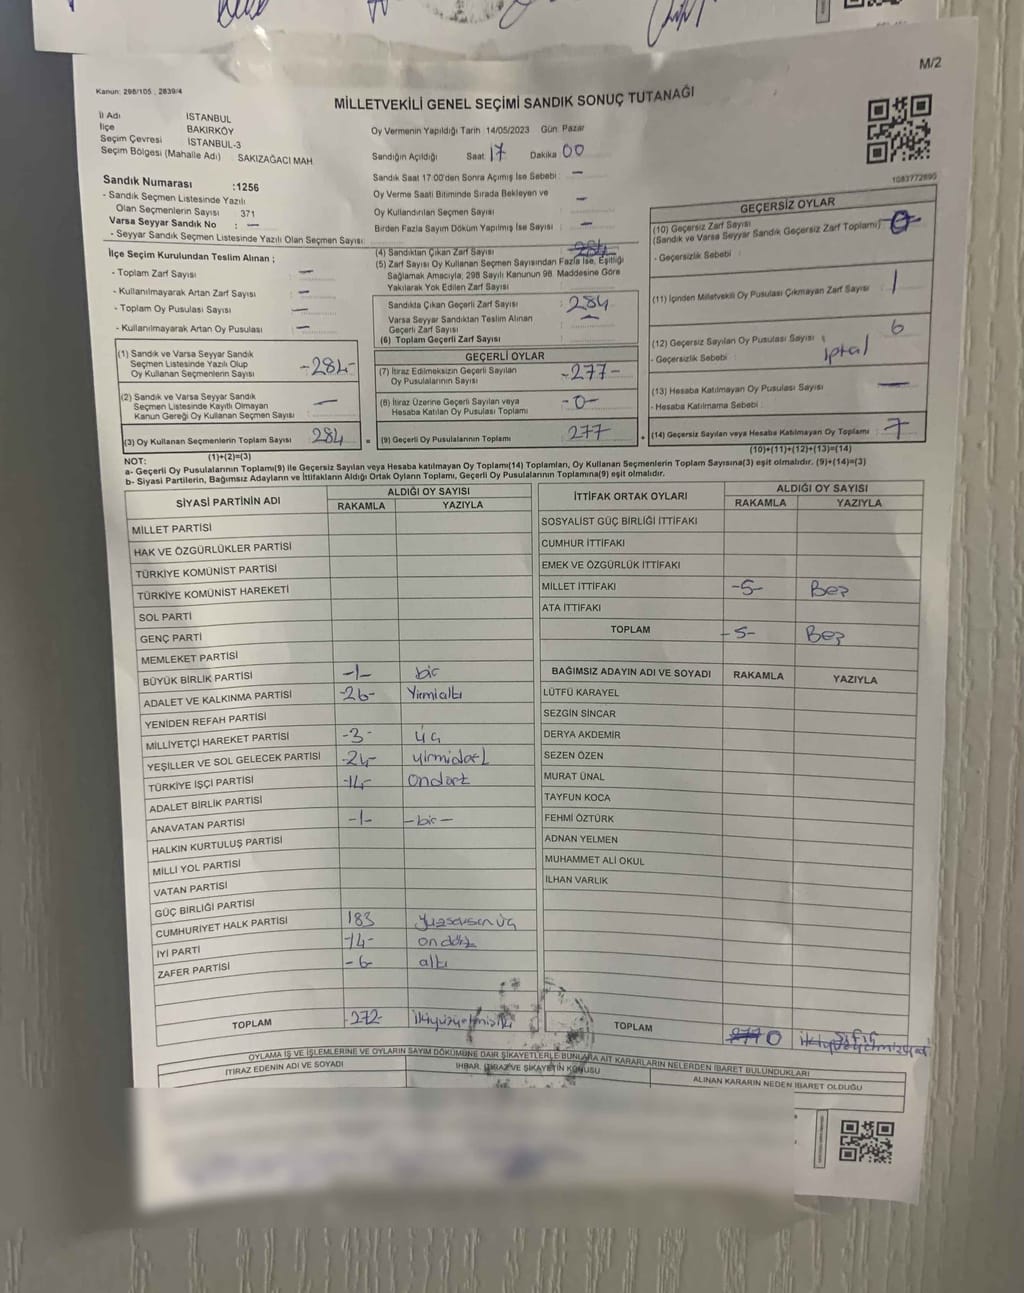 M/2
Kanun: 298/105 , 2839/4
MİLLETVEKİLİ GENEL SEÇİMİ SANDIK SONUÇ TUTANAĞI
İl Adı İSTANBUL
İlçe BAKIRKÖY
Seçim Çevresi İSTANBUL-3
Seçim Bölgesi (Mahalle Adı) SAKIZAĞACI MAH
Oy Vermenin Yapıldığı Tarih 14/05/2023 Gün Pazar
Sandığın Açıldığı Saat 17 Dakika 00
Sandık Saat 17:00'den Sonra Açımış İse Sebebi : —
Oy Verme Saati Bitiminde Sırada Bekleyen ve
Oy Kullandırılan Seçmen Sayısı : —
Birden Fazla Sayım Döküm Yapılmış İse Sayısı : —
1083772890
Sandık Numarası :1256
- Sandık Seçmen Listesinde Yazılı
Olan Seçmenlerin Sayısı 371
Varsa Seyyar Sandık No : —
- Seyyar Sandık Seçmen Listesinde Yazılı Olan Seçmen Sayısı:
İlçe Seçim Kurulundan Teslim Alınan ;
- Toplam Zarf Sayısı —
- Kullanılmayarak Artan Zarf Sayısı —
- Toplam Oy Pusulası Sayısı —
- Kullanılmayarak Artan Oy Pusulası —
(1) Sandık ve Varsa Seyyar Sandık
Seçmen Listesinde Yazılı Olup
Oy Kullanan Seçmenlerin Sayısı -284-
(2) Sandık ve Varsa Seyyar Sandık
Seçmen Listesinde Kayıtlı Olmayan
Kanun Gereği Oy Kullanan Seçmen Sayısı —
(3) Oy Kullanan Seçmenlerin Toplam Sayısı 284
(1)+(2)=(3)
(4) Sandıktan Çıkan Zarf Sayısı 284
(5) Zarf Sayısı Oy Kullanan Seçmen Sayısından Fazla İse, Eşitliği
Sağlamak Amacıyla, 298 Sayılı Kanunun 98. Maddesine Göre
Yakılarak Yok Edilen Zarf Sayısı
Sandıkta Çıkan Geçerli Zarf Sayısı : 284
Varsa Seyyar Sandıktan Teslim Alınan
Geçerli Zarf Sayısı —
(6) Toplam Geçerli Zarf Sayısı
GEÇERLİ OYLAR
(7) İtiraz Edilmeksizin Geçerli Sayılan
Oy Pusulalarının Sayısı -277-
(8) İtiraz Üzerine Geçerli Sayılan veya
Hesaba Katılan Oy Pusulası Toplamı -0-
= (9) Geçerli Oy Pusulalarının Toplamı 277
GEÇERSİZ OYLAR
(10) Geçersiz Zarf Sayısı
(Sandık ve Varsa Seyyar Sandık Geçersiz Zarf Toplamı) 0
- Geçersizlik Sebebi :
(11) İçinden Milletvekili Oy Pusulası Çıkmayan Zarf Sayısı 1
(12) Geçersiz Sayılan Oy Pusulası Sayısı 6
- Geçersizlik Sebebi iptal
(13) Hesaba Katılmayan Oy Pusulası Sayısı —
- Hesaba Katılmama Sebebi
+ (14) Geçersiz Sayılan veya Hesaba Katılmayan Oy Toplamı 7
(10)+(11)+(12)+(13)=(14)
NOT:
a- Geçerli Oy Pusulalarının Toplamı(9) ile Geçersiz Sayılan veya Hesaba katılmayan Oy Toplamı(14) Toplamları, Oy Kullanan Seçmenlerin Toplam Sayısına(3) eşit olmalıdır. (9)+(14)=(3)
b- Siyasi Partilerin, Bağımsız Adayların ve İttifakların Aldığı Ortak Oyların Toplamı, Geçerli Oy Pusulalarının Toplamına(9) eşit olmalıdır.
SİYASİ PARTİNİN ADI ALDIĞI OY SAYISI
RAKAMLA YAZIYLA
MİLLET PARTİSİ
HAK VE ÖZGÜRLÜKLER PARTİSİ
TÜRKİYE KOMÜNİST PARTİSİ
TÜRKİYE KOMÜNİST HAREKETİ
SOL PARTİ
GENÇ PARTİ
MEMLEKET PARTİSİ
BÜYÜK BİRLİK PARTİSİ -1- bir
ADALET VE KALKINMA PARTİSİ -26- Yirmialtı
YENİDEN REFAH PARTİSİ
MİLLİYETÇİ HAREKET PARTİSİ -3- üç
YEŞİLLER VE SOL GELECEK PARTİSİ -24- yirmidört
TÜRKİYE İŞÇİ PARTİSİ -14- Ondört
ADALET BİRLİK PARTİSİ
ANAVATAN PARTİSİ -1- -bir-
HALKIN KURTULUŞ PARTİSİ
MİLLİ YOL PARTİSİ
VATAN PARTİSİ
GÜÇ BİRLİĞİ PARTİSİ
CUMHURİYET HALK PARTİSİ 183 Yüzseksenüç
İYİ PARTİ -14- ondört
ZAFER PARTİSİ -6- altı
TOPLAM -272- ikiyüzyetmişiki
İTTİFAK ORTAK OYLARI ALDIĞI OY SAYISI
RAKAMLA YAZIYLA
SOSYALİST GÜÇ BİRLİĞİ İTTİFAKI
CUMHUR İTTİFAKI
EMEK VE ÖZGÜRLÜK İTTİFAKI
MİLLET İTTİFAKI -5- Beş
ATA İTTİFAKI
TOPLAM -5- Beş
BAĞIMSIZ ADAYIN ADI VE SOYADI RAKAMLA YAZIYLA
LÜTFÜ KARAYEL
SEZGİN SİNCAR
DERYA AKDEMİR
SEZEN ÖZEN
MURAT ÜNAL
TAYFUN KOCA
FEHMİ ÖZTÜRK
ADNAN YELMEN
MUHAMMET ALİ OKUL
İLHAN VARLIK
TOPLAM 277 0 sıfır
OYLAMA İŞ VE İŞLEMLERİNE VE OYLARIN SAYIM DÖKÜMÜNE DAİR ŞİKAYETLERLE BUNLARA AİT KARARLARIN NELERDEN İBARET BULUNDUKLARI
İTİRAZ EDENİN ADI VE SOYADI İHBAR, İTİRAZ VE ŞİKAYETİN KONUSU ALINAN KARARIN NEDEN İBARET OLDUĞU